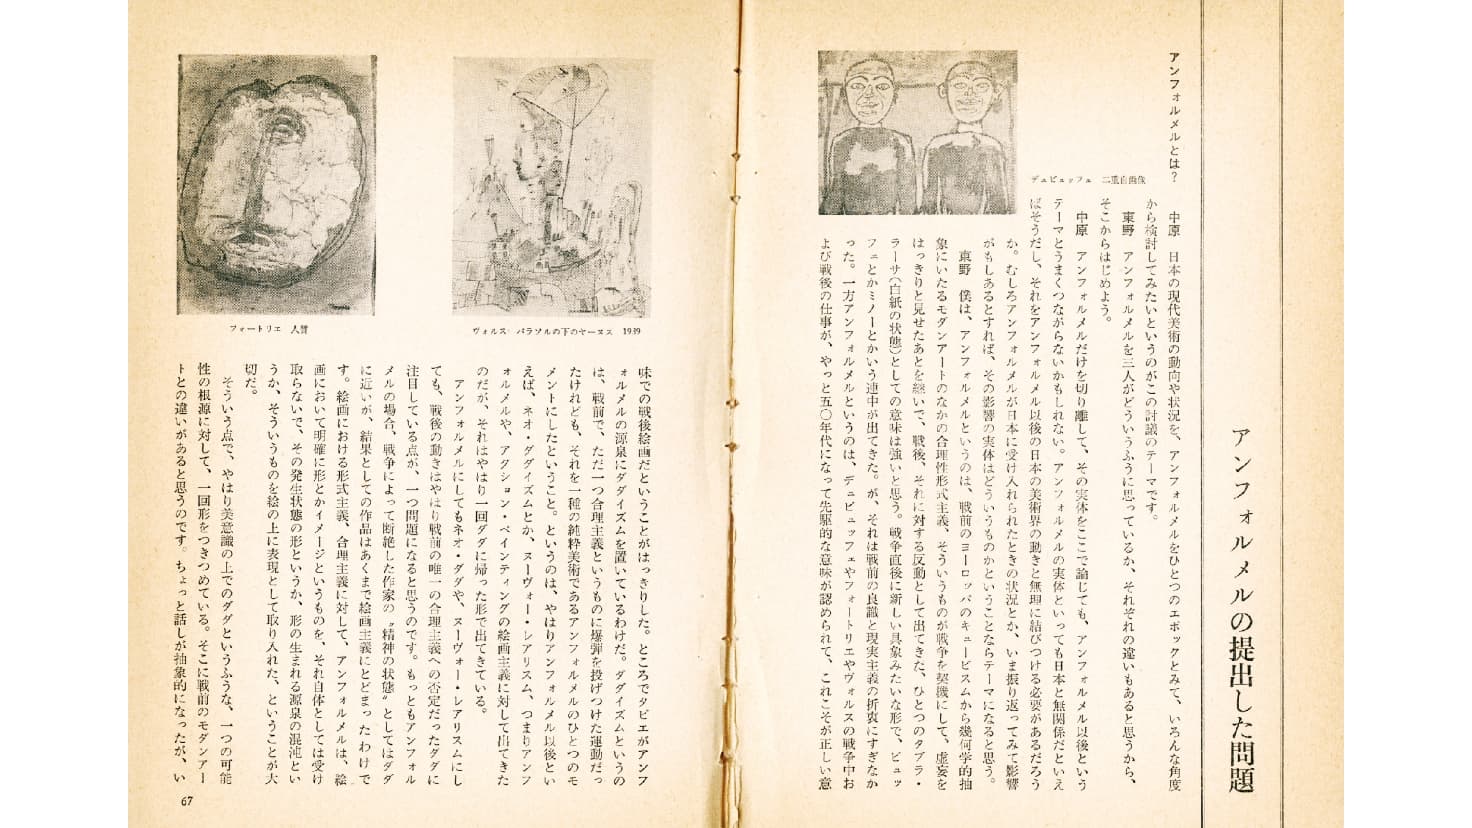 アンフォルメルの提出した問題
アンフォルメルとは？
中原　日本の現代美術の動向や状況を、アンフォルメルをひとつのエポックとみて、いろんな角度
から検討してみたいというのがこの討議のテーマです。
東野　アンフォルメルを三人がどういうふうに思っているか、それぞれの違いもあると思うから、
そこからはじめよう。
中原　アンフォルメルだけを切り離して、その実体をここで論じても、アンフォルメル以後という
テーマとうまくつながらないかもしれない。アンフォルメルの実体といっても日本と無関係だといえ
ばそうだし、それをアンフォルメル以後の日本の美術界の動きと無理に結びつける必要があるだろう
か。むしろアンフォルメルが日本に受け入れられたときの状況とか、いま振り返ってみて影響
がもしあるとすれば、その影響の実体はどういうものかということならテーマになると思う。
東野　僕は、アンフォルメルというのは、戦前のヨーロッパのキュービスムから幾何学的抽
象にいたるモダンアートのなかの合理性形式主義、そういうものが戦争を契機にして、虚妄を
はっきりと見せたあとを継いで、戦後、それに対する反動として出てきた、ひとつのタブラ・
ラーサ（白紙の状態）としての意味は強いと思う。戦争直後に新しい具象みたいな形で、ビュッ
フェとかミノーとかいう連中が出てきた。が、それは戦前の良識と現実主義の折衷にすぎなか
った。一方アンフォルメルというのは、デュビュッフェやフォートリエやヴォルスの戦争中お
よび戦後の仕事が、やっと五〇年代になって先駆的な意味が認められて、これこそが正しい意
デュビュッフェ　二重自画像
ヴォルス　パラソルの下のヤーヌス　1939
フォートリエ　人質
味での戦後絵画だということがはっきりした。ところでタピエがアンフ
ォルメルの源泉にダダイズムを置いているわけだ。ダダイズムというの
は、戦前で、ただ一つ合理主義というものに爆弾を投げつけた運動だっ
たけれども、それを一種の純粋美術であるアンフォルメルのひとつのモ
メントにしたということ。というのは、やはりアンフォルメル以後とい
えば、ネオ・ダダイズムとか、ヌーヴォー・レアリスム、つまりアンフ
ォルメルや、アクション・ペインティングの絵画主義に対して出てきた
のだが、それはやはり一回ダダに帰った形で出てきている。
アンフォルメルにしてもネオ・ダダや、ヌーヴォー・レアリスムにし
ても、戦後の動きはやはり戦前の唯一の合理主義への否定だったダダに
注目している点が、一つ問題になると思うのです。もっともアンフォル
メルの場合、戦争によって断絶した作家の〝精神の状態〟としてはダダ
に近いが、結果としての作品はあくまで絵画主義にとどまったわけで
す。絵画における形式主義、合理主義に対して、アンフォルメルは、絵
画において明確に形とかイメージというものを、それ自体としては受け
取らないで、その発生状態の形というか、形の生まれる源泉の混沌とい
うか、そういうものを絵の上に表現として取り入れた、ということが大
切だ。
そういう点で、やはり美意識の上でのダダというふうな、一つの可能
性の根源に対して、一回形をつきつめている。そこに戦前のモダンアー
トとの違いがあると思うのです。ちょっと話しが抽象的になったが、い
67